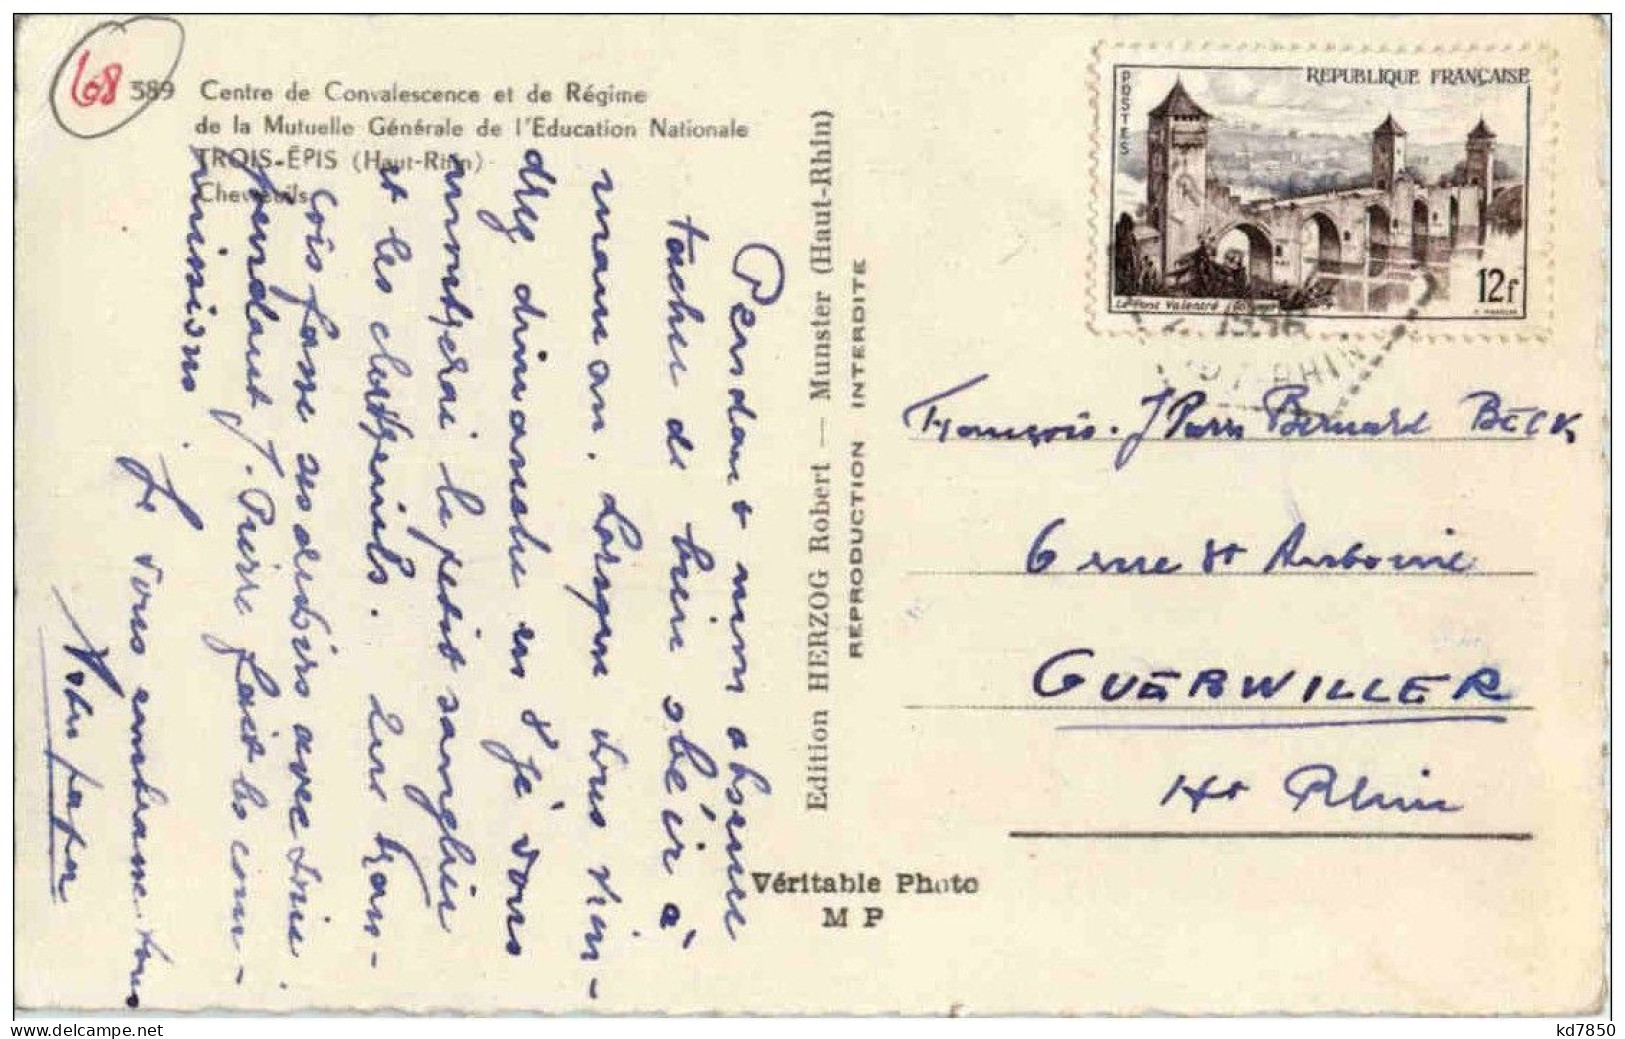 68
389 Centre de Convalescence et de Régime
de la Mutuelle Générale de l'Education Nationale
TROIS-ÉPIS (Haut-Rhin)
Chevreuils
Pendant mon absence
tacher de bien obéir à
maman. Lorsque vous vien-
drez dimanche en 8 je vous
montrerai le petit sanglier
et les chevreuils. Que Fran-
çois fasse ses devoirs avec soin.
pendant J. Pierre fait les com-
missions.
Je vous embrasse tous
Votre papa
Edition HERZOG Robert — Munster (Haut-Rhin)
REPRODUCTION INTERDITE
Véritable Photo
M P
REPUBLIQUE FRANÇAISE
POSTES
12f
Le Pont Valentré
1956
RHIN
François. J Pierre Bernard BECK
6 rue St
GUEBWILLER
Ht Rhin
kd7850